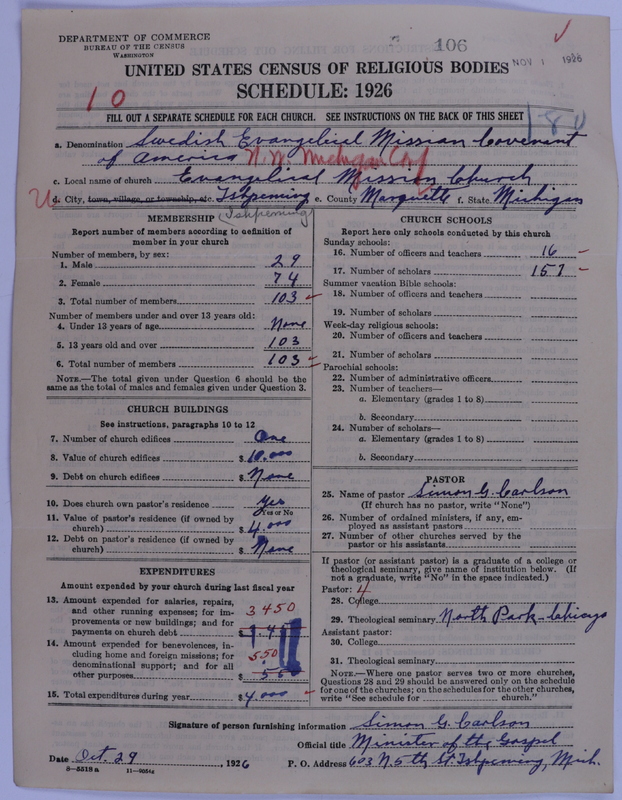 DEPARTMENT OF COMMERCE
BUREAU OF THE CENSUS
WASHINGTON
106
NOV 1 1926
UNITED STATES CENSUS OF RELIGIOUS BODIES
SCHEDULE: 1926
10
FILL OUT A SEPARATE SCHEDULE FOR EACH CHURCH. SEE INSTRUCTIONS ON THE BACK OF THIS SHEET
180
a. Denomination Swedish Evangelical Mission Covenant
of America N.W. Michigan Conf
c. Local name of church Evangelical Mission Church
U d. City, town, village, or township, etc. Ishpeming e. County Marquette f. State Michigan
(Ishpeming)
MEMBERSHIP
Report number of members according to definition of
member in your church
Number of members, by sex:
1. Male 29
2. Female 74
3. Total number of members 103
Number of members under and over 13 years old:
4. Under 13 years of age None
5. 13 years old and over 103
6. Total number of members 103
NOTE.—The total given under Question 6 should be the
same as the total of males and females given under Question 3.
CHURCH BUILDINGS
See instructions, paragraphs 10 to 12
7. Number of church edifices One
8. Value of church edifices $ 10.000
9. Debt on church edifices $ None
10. Does church own pastor's residence Yes
Yes or No
11. Value of pastor's residence (if owned by
church) $ 4.000
12. Debt on pastor's residence (if owned by
church) $ None
EXPENDITURES
Amount expended by your church during last fiscal year
13. Amount expended for salaries, repairs,
and other running expenses; for im-
provements or new buildings; and for
payments on church debt $
3450
14. Amount expended for benevolences, in-
cluding home and foreign missions; for
denominational support; and for all
other purposes $
550
15. Total expenditures during year $ 4.000
CHURCH SCHOOLS
Report here only schools conducted by this church
Sunday schools:
16. Number of officers and teachers 16
17. Number of scholars 157
Summer vacation Bible schools:
18. Number of officers and teachers
19. Number of scholars
Week-day religious schools:
20. Number of officers and teachers
21. Number of scholars
Parochial schools:
22. Number of administrative officers
23. Number of teachers—
a. Elementary (grades 1 to 8)
b. Secondary
24. Number of scholars—
a. Elementary (grades 1 to 8)
b. Secondary
PASTOR
25. Name of pastor Simon G. Carlson
(If church has no pastor, write "None")
26. Number of ordained ministers, if any, em-
ployed as assistant pastors
27. Number of other churches served by the
pastor or his assistants
If pastor (or assistant pastor) is a graduate of a college or
theological seminary, give name of institution below. (If
not a graduate, write "No" in the space indicated.)
Pastor: 4
28. College
29. Theological seminary North Park - Chicago
Assistant pastor:
30. College
31. Theological seminary
NOTE.—Where one pastor serves two or more churches,
Questions 28 and 29 should be answered only on the schedule
for one of the churches; on the schedules for the other churches,
write "See schedule for church."
Signature of person furnishing information Simon G. Carlson
Official title Minister of the Gospel
Date Oct. 29, 1926 P. O. Address 603 N 5th St Ishpeming, Mich.
8-5518a 11-9564a